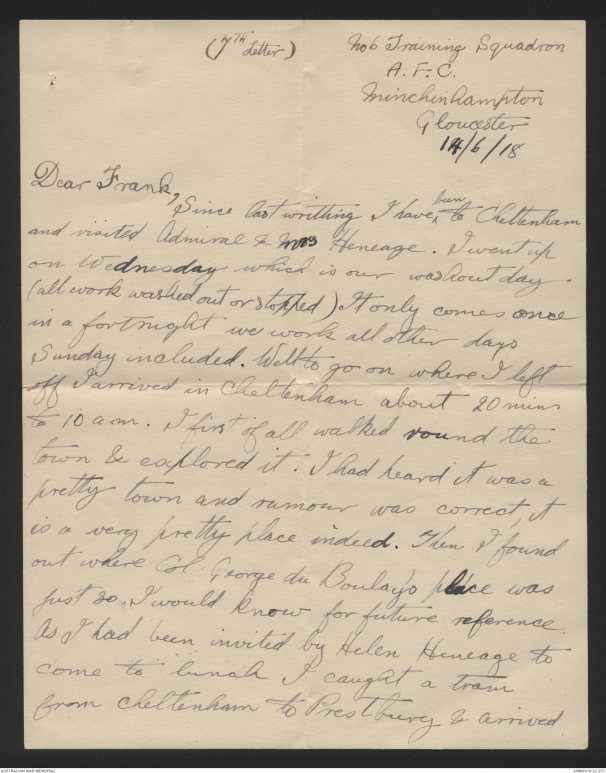 (7TH Letter)
No 6 Training Squadron
A. F. C.
Minchinhampton
Gloucester
14/6/18
Dear Frank,
Since last writting I have been to Cheltenham
and visited Admiral & Mrs Heneage. I went up
on Wednesday which is our washout day.
(all work washed out or stopped) It only comes once
in a fortnight we work all other days
Sunday included. Well to go on where I left
off I arrived in Cheltenham about 20 mins
to 10 a.m. I first of all walked round the
town & explored it. I had heard it was a
pretty town and rumour was correct, it
is a very pretty place indeed. Then I found
out where Col George du Boulay's place was
just so I would know for future reference.
As I had been invited by Helen Heneage to
come to lunch I caught a tram
from Cheltenham to Prestburg & arrived
AUSTRALIAN WAR MEMORIAL